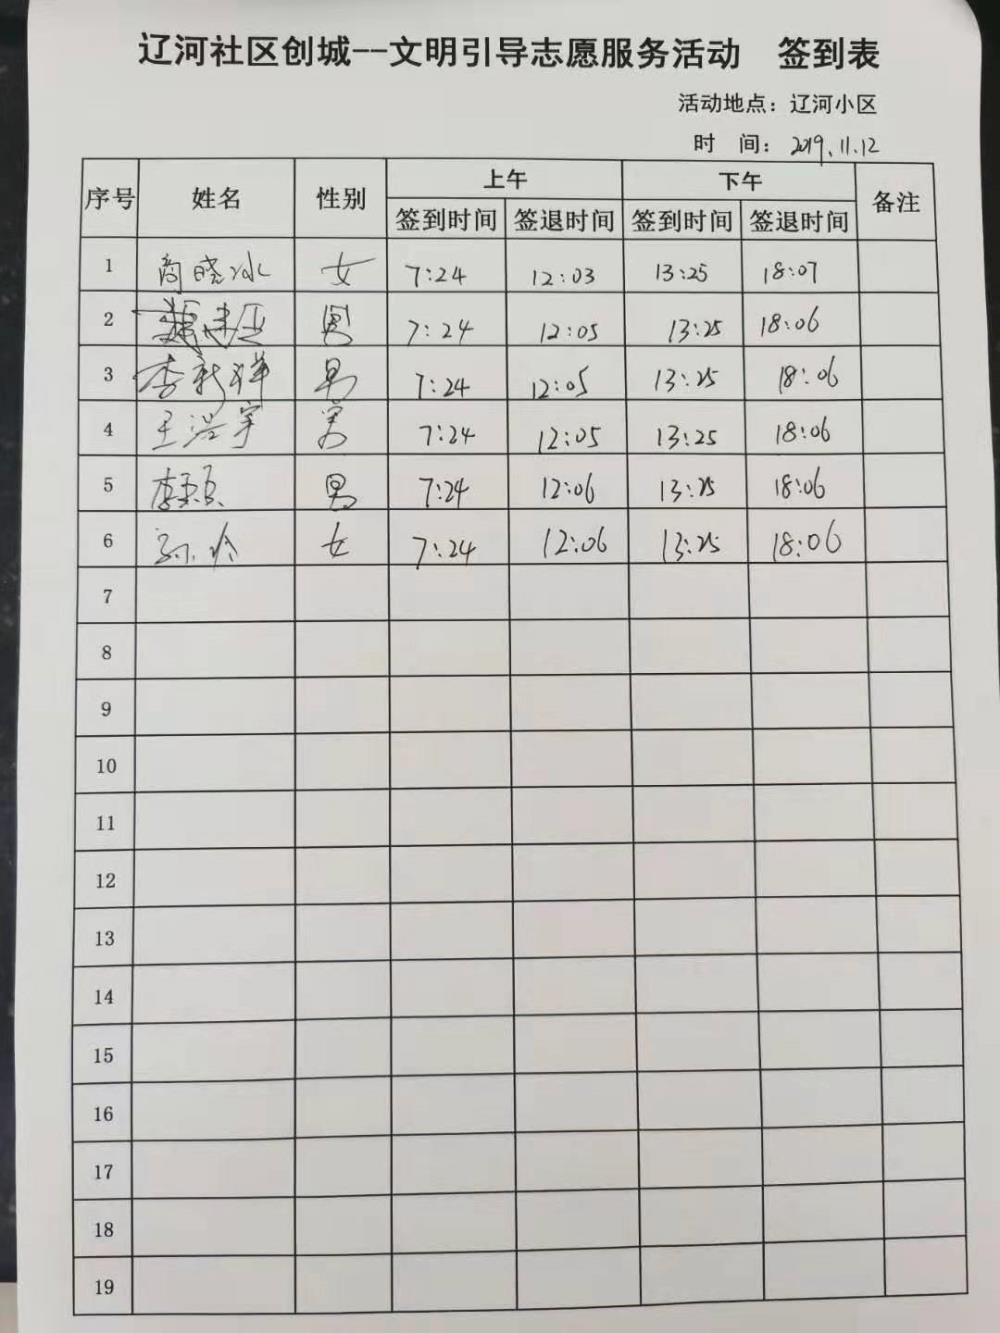 辽河社区创城--文明引导志愿服务活动 签到表
活动地点：辽河小区
时 间：2019.11.12
序号 姓名 性别 上午 下午 备注
签到时间 签退时间 签到时间 签退时间
1 商晓冰 女 7:24 12:03 13:25 18:07
2 男 7:24 12:05 13:25 18:06
3 李新祥 男 7:24 12:05 13:25 18:06
4 王浴宇 男 7:24 12:05 13:25 18:06
5 李 男 7:24 12:06 13:25 18:06
6 女 7:24 12:06 13:25 18:06
7
8
9
10
11
12
13
14
15
16
17
18
19